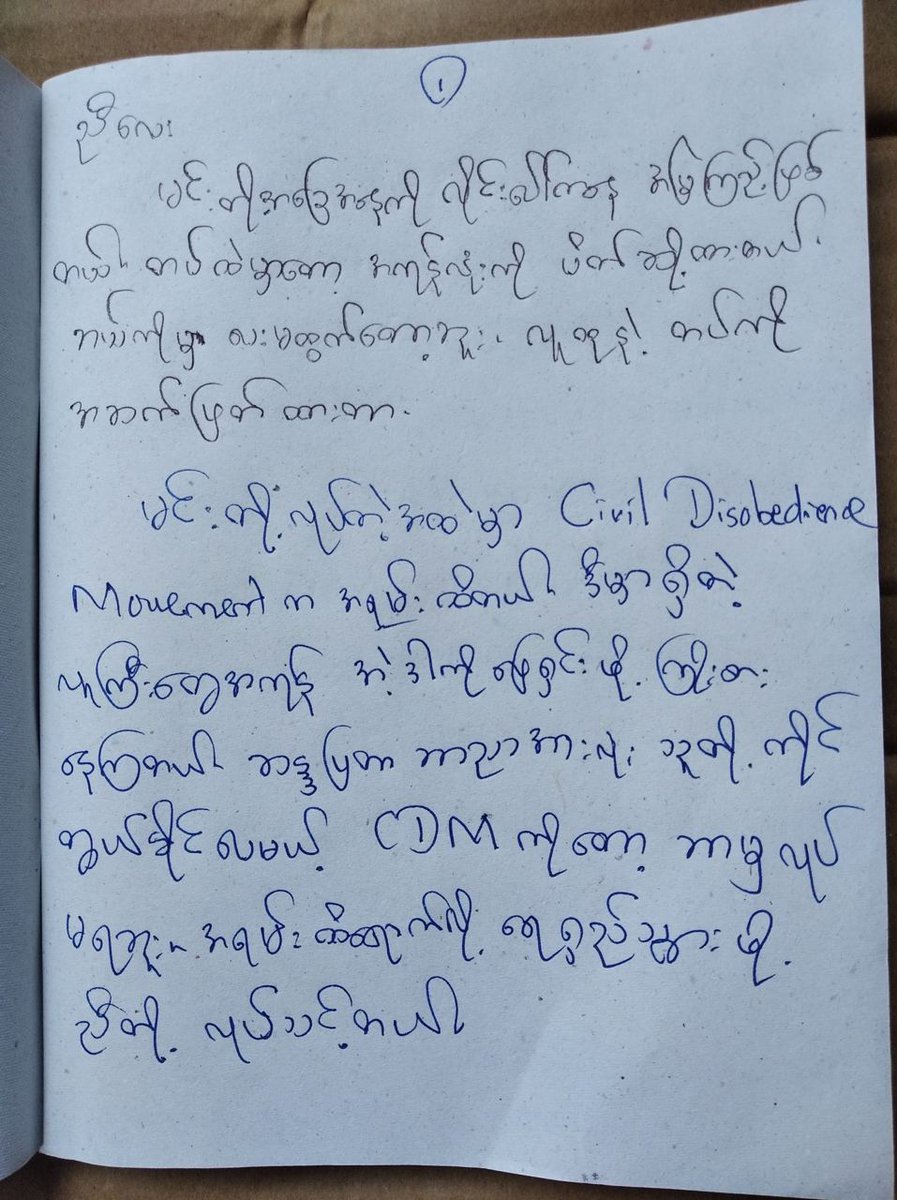 ၁
ညီလေး
မင်းတို့အခြေအနေကို လိုင်းပေါ်ကနေ အမြဲကြည့်ဖြစ်
တယ်။ တပ်ထဲမှာတော့ အကုန်လုံးကို ပိတ်ဆို့ထားတယ်.
ဘယ်ကိုမှ ပေးမထွက်တော့ဘူး. လူထုနဲ့ တပ်ကို
အဆက်ဖြတ်ထားတာ.
မင်းတို့လုပ်တဲ့အထဲမှာ Civil Disobedience
Movement က အရမ်းထိတယ်။ ဒီမှာရှိတဲ့
လူကြီးတွေအကုန် အဲ့ဒါကိုဖြေရှင်းဖို့ ကြိုးစား
နေကြတယ်။ ဆန္ဒပြတာ ဘာညာအားလုံး သူတို့ ကိုင်
တွယ်နိုင်ပေမယ့် CDM ကိုတော့ ဘာမှလုပ်
မရဘူး။ အရမ်းထိရောက်လို့ ရေရှည်သွားဖို့
ညီတို့ လုပ်သင့်တယ်။